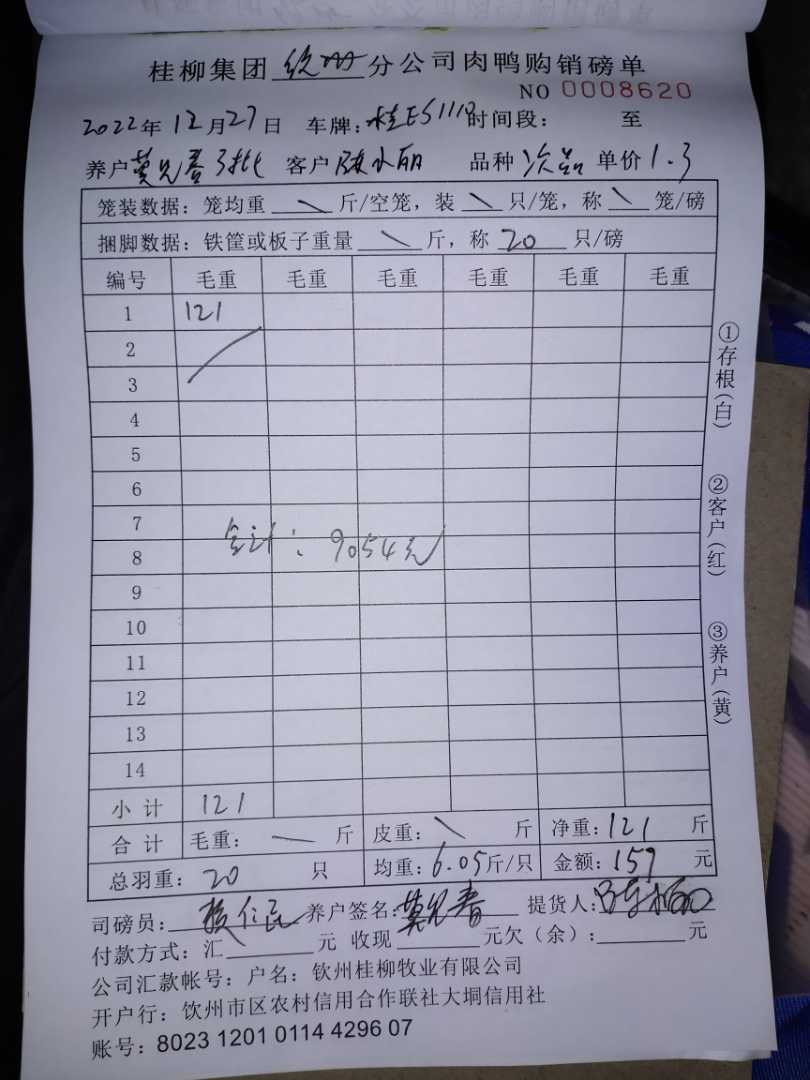 桂柳集团 钦州 分公司肉鸭购销磅单
NO 0008620
2022年12月27日 车牌: 时间段: 至
养户 莫兄春 3批 客户 陈小丽 品种 次品 单价 1.3
笼装数据:笼均重 \ 斤/空笼,装 \ 只/笼,称 \ 笼/磅
捆脚数据:铁筐或板子重量 \ 斤,称 20 只/磅
编号 毛重 毛重 毛重 毛重 毛重 毛重
1 121
2
3
4
5
6
7
合计:9054元
8
9
10
11
12
13
14
小计 121
合计 毛重: — 斤 皮重: \ 斤 净重:121 斤
总羽重: 20 只 均重:6.05斤/只 金额:157 元
司磅员: 养户签名:莫兄春 提货人:
付款方式:汇 元 收现 元欠(余): 元
公司汇款帐号:户名:钦州桂柳牧业有限公司
开户行:钦州市区农村信用合作联社大垌信用社
账号:8023 1201 0114 4296 07
①存根(白)
②客户(红)
③养户(黄)